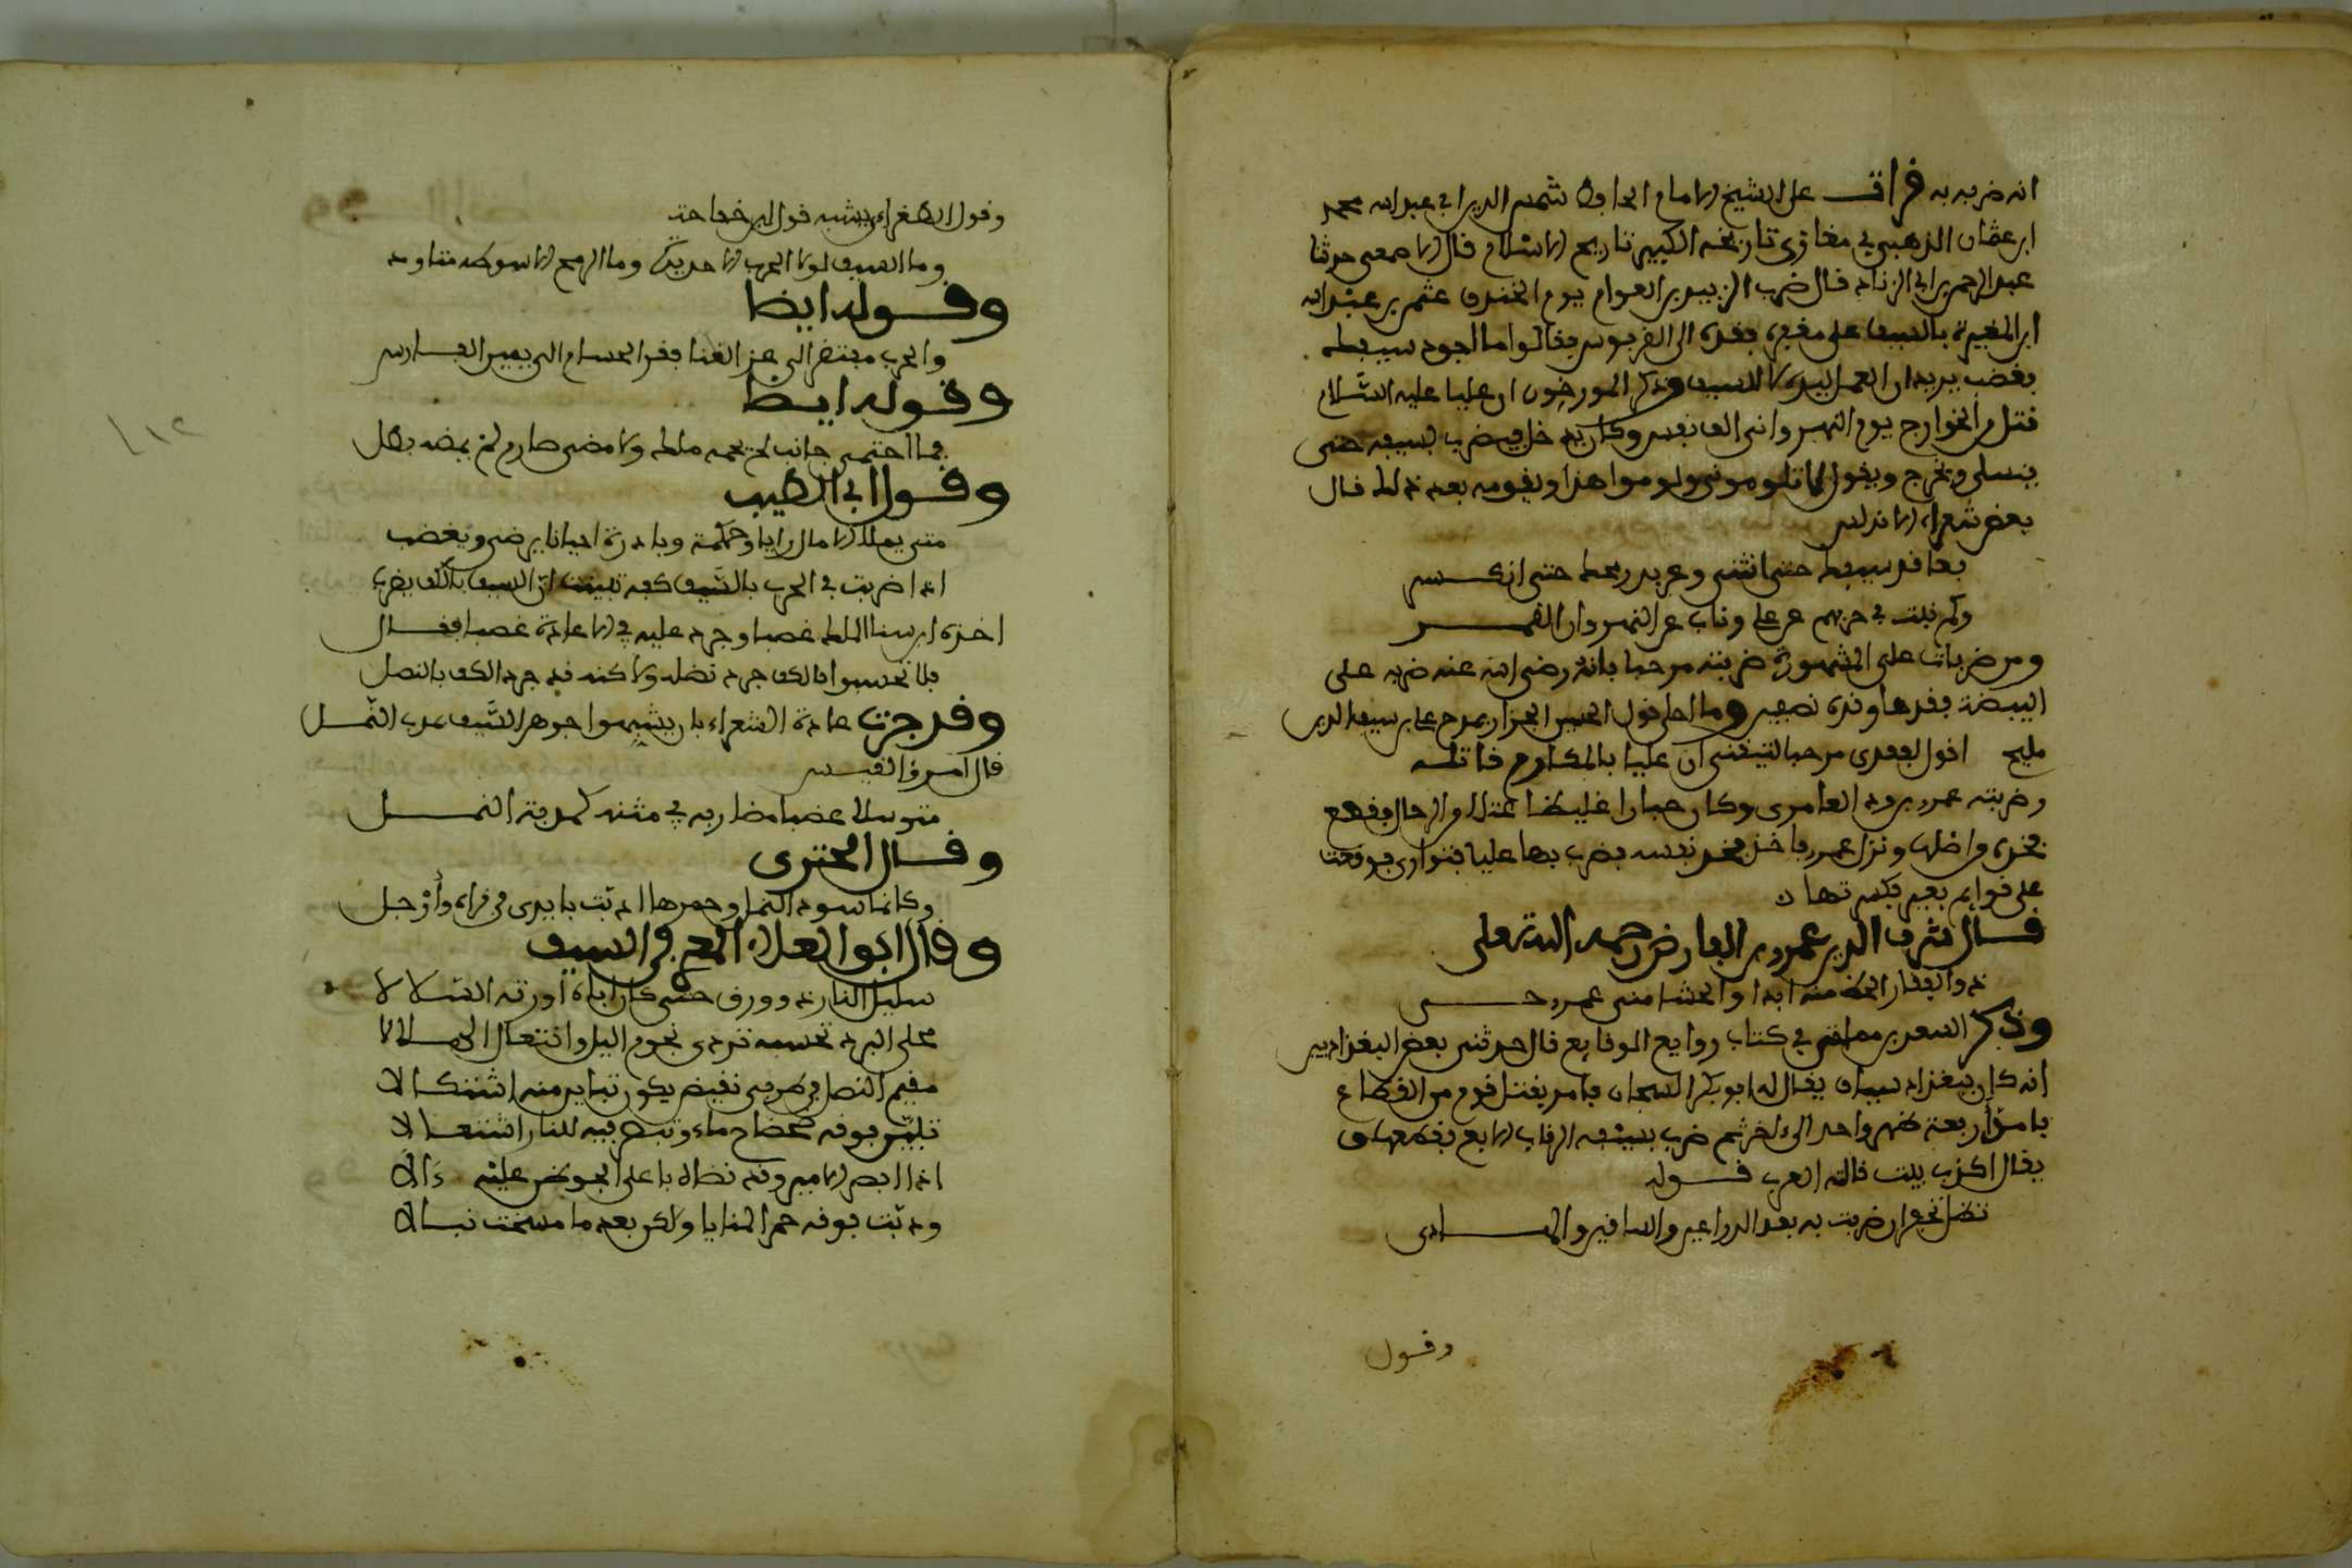 انه ضربه به قرات على الشيخ الامام الحافظ شمس الدين ابي عبد الله محمد
ابن عثمان الذهبي في مغازي تاريخه الكبير تاريخ الاسلام قال الاصمعي حدثنا
عبد الرحمن بن ابي الزناد قال ضرب الزبير بن العوام يوم الخندق عثمن بن عبد الله
ابن المغيرة بالسيف على مغفره فقده الى القربوس فقالوا ما اجود سيفك
فغضب يريد ان العمل ليده لا للسيف وذكر المورخون ان عليا عليه السلام
قتل من الخوارج يوم النهر وانى الف نفس وكان يدخل فيضرب بسيفه حتى
ينثني ويخرج ويقول لا تلوموني ولوموا هذا ويقومه بعد ذلك قال
بعض شعراء الاندلس
سيفك حتى انثنى وعربد رمحك حتى انكسر
وكم نبت في حربهم عن علي وناب عن النهروان النهر
ومن ضربات علي المشهورة ضربته مرحبا فانه رضي الله عنه ضربه على
البيضة فقدها وقده نصفين وما احلى قول ابي الحسين الجزار يمدح علي بن سيف الدين
مليح اقول لفقري مرحبا لتيقني ان عليا بالمكارم قاتله
وضربته عمرو بن ود العامري وكان جبارا غليظا من الرجال فقطع
فخذه من اصلها ونزل عمرو فاخذ فخذ نفسه فضرب بها عليا فتوارى فوقعت
على قوائم بعير فكسرتها
قال شرف الدين عمر بن الفارض رحمه الله تعلى
ذو الفقار اللحظ منه ابدا والحشا مني عمرو حيي
وذكر السعد بن مماتي في كتاب روايع الوقايع قال حدثني بعض البغداديين
انه كان ببغداد سياف يقال له ابو بكر السجان فامر بقتل قوم من القطاع
فامر اربعة ظهر واحد الى اخر ثم ضرب بسيفه الرقاب الاربع فقطعها
يقال اكذب بيت قالته العرب قوله
تظل تحفر ان ضربت به بعد الذراعين والساقين والهادي
وقول
وقول الطغراءي يشبه قول ابن خفاجة
وما السيف لولا الحرب الا حديدة وما الرمح الا سوطه متاود
وقوله ايضا
والحرب مفتقر الى عز الغنا فقر الحسام الى يمين الفارس
وقوله ايضا
فما احتمى جانب لم يحمه ملك ولا مضى صارم لم يمضه بطل
وقول ابي الطيب
متى يملك الامال رايا وحكمة وبادرة احيانا يرضى ويغضب
اذا ضربت في الحرب بالسيف كفه تبينت ان السيف بالكف يضرب
اخذه ابن سنا الملك غصبا وجرد عليه في الاعادة عضبا فقال
فلا تحسبوا فالكف جرد نصله ولاكنه قد جرد الكف بالنصل
وقد جرت عادة الشعراء بان يشبهوا جوهر السيف بدب النمل
قال امرؤ القيس
متوسدا عضبا مضاربه في متنه كمدبة النمل
وقال البحتري
وكانما سود النمال وحمرها دبت بايدي في قراه وارجل
وقال ابو العلاء المعري في السيف
سليل النار دق ورق حتى كان اباه اورثه السلالا
محلى البرد تحسبه تردى نجوم اليل وانتعل الهلالا
مقيم النصل في طرفي نقيض يكون تباين منه اشتكالا
تبين فوقه ضحضاح ماء وتبصر فيه للنار اشتعالا
اذا ابصر الامير وقد نضاه باعلى الجو ظن عليه آلا
ودبت فوقه حمر المنايا ولكن بعد ما مسخت نمالا